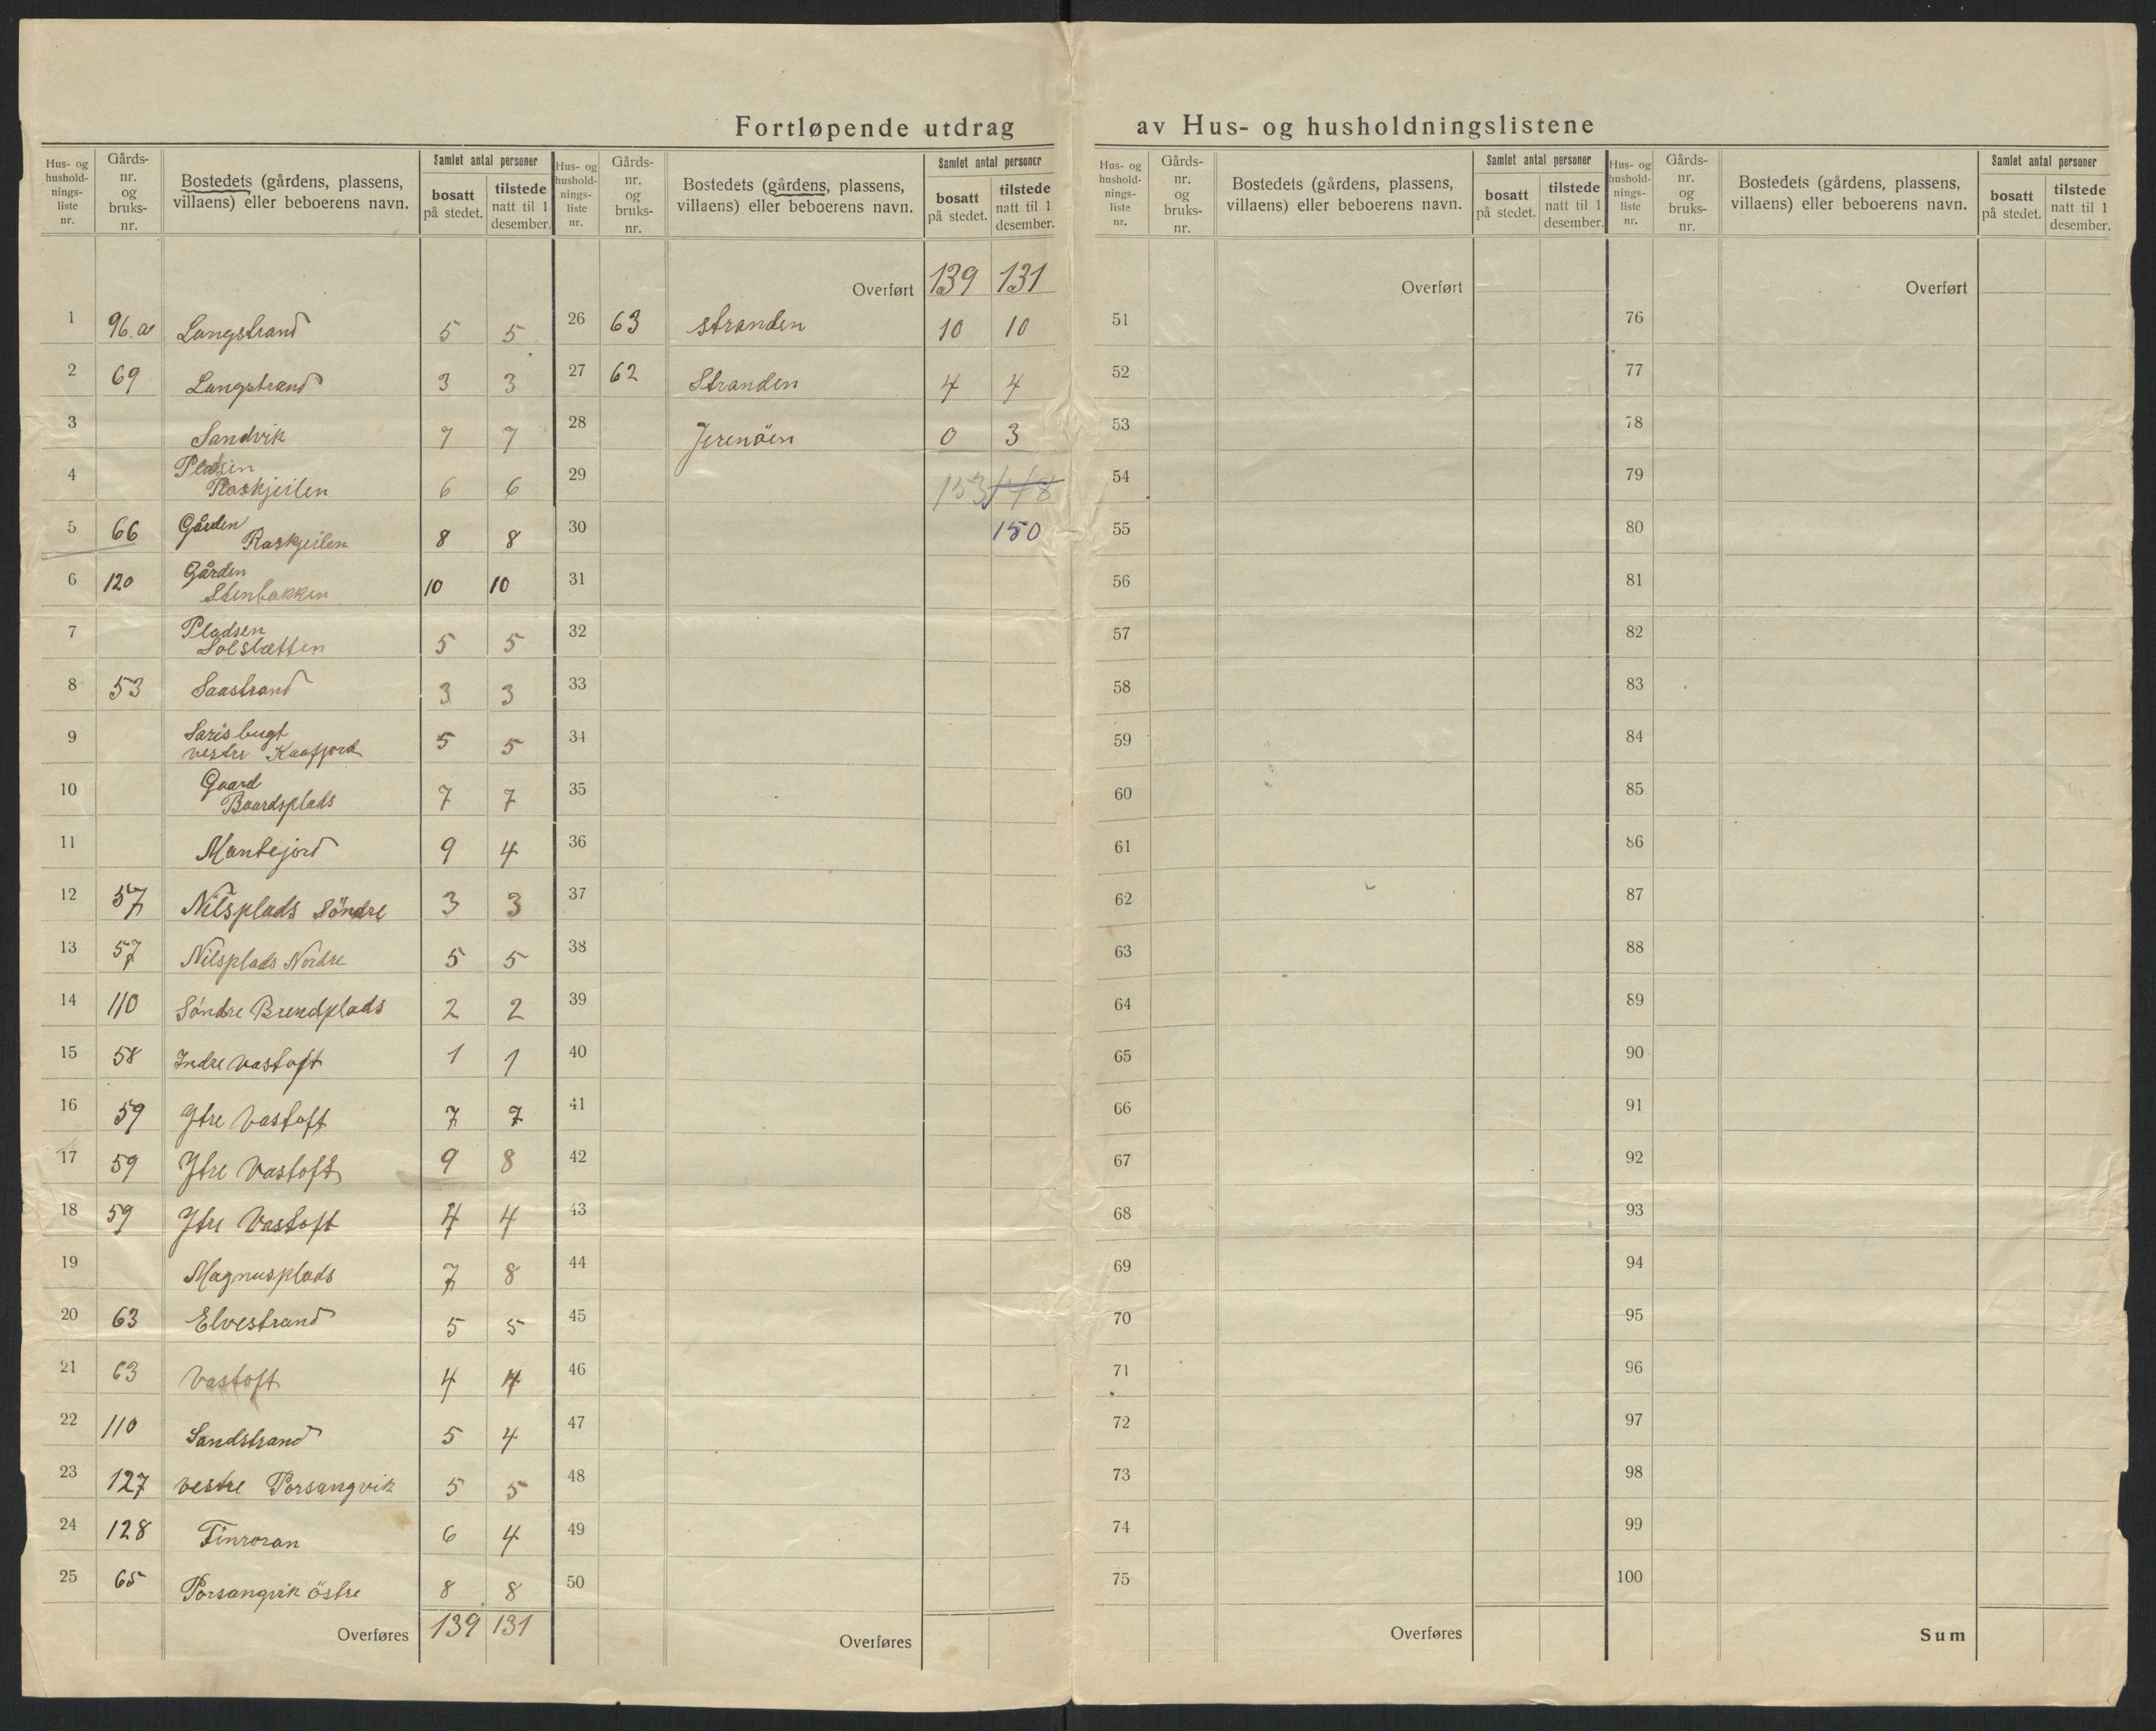 Fortløpende utdrag av Hus- og husholdningslistene
Hus- og hushold-nings-liste nr. Gårds-nr. og bruks-nr. Bostedets (gårdens, plassens, villaens) eller beboerens navn. Samlet antal personer bosatt på stedet. tilstede natt til 1 desember.
1 96.a Langstrand 5 5
2 69 Langstrand 3 3
3 Sandvik 7 7
4 Pladsen
Raskjeilen 6 6
5 66 Gården
Raskjeilen 8 8
6 120 Gården
Stenbakken 10 10
7 Pladsen
Solsletten 5 5
8 53 Saastrand 3 3
9 Sarisbugt
vestre Kaafjord 5 5
10 Gaard
Baardsplads 7 7
11 Mantejord 9 4
12 57 Nilsplads Söndre 3 3
13 57 Nilsplads Nordre 5 5
14 110 Söndre Brendplads 2 2
15 58 Indre Vastoft 1 1
16 59 Ytre Vastoft 7 7
17 59 Ytre Vastoft 9 8
18 59 Ytre Vastoft 4 4
19 Magnusplads 7 8
20 63 Elvestrand 5 5
21 63 Vastoft 4 4
22 110 Sandstrand 5 4
23 127 vestre Porsangvik 5 5
24 128 Finroran 6 4
25 65 Porsangvik östre 8 8
Overføres 139 131
Hus- og hushold-nings-liste nr. Gårds-nr. og bruks-nr. Bostedets (gårdens, plassens, villaens) eller beboerens navn. Samlet antal personer bosatt på stedet. tilstede natt til 1 desember.
Overført 139 131
26 63 Stranden 10 10
27 62 Stranden 4 4
28 Jerenöen 0 3
29 153 148
30 150
31
32
33
34
35
36
37
38
39
40
41
42
43
44
45
46
47
48
49
50
Overføres
Hus- og hushold-nings-liste nr. Gårds-nr. og bruks-nr. Bostedets (gårdens, plassens, villaens) eller beboerens navn. Samlet antal personer bosatt på stedet. tilstede natt til 1 desember.
Overført
51
52
53
54
55
56
57
58
59
60
61
62
63
64
65
66
67
68
69
70
71
72
73
74
75
Overføres
Hus- og hushold-nings-liste nr. Gårds-nr. og bruks-nr. Bostedets (gårdens, plassens, villaens) eller beboerens navn. Samlet antal personer bosatt på stedet. tilstede natt til 1 desember.
Overført
76
77
78
79
80
81
82
83
84
85
86
87
88
89
90
91
92
93
94
95
96
97
98
99
100
Sum